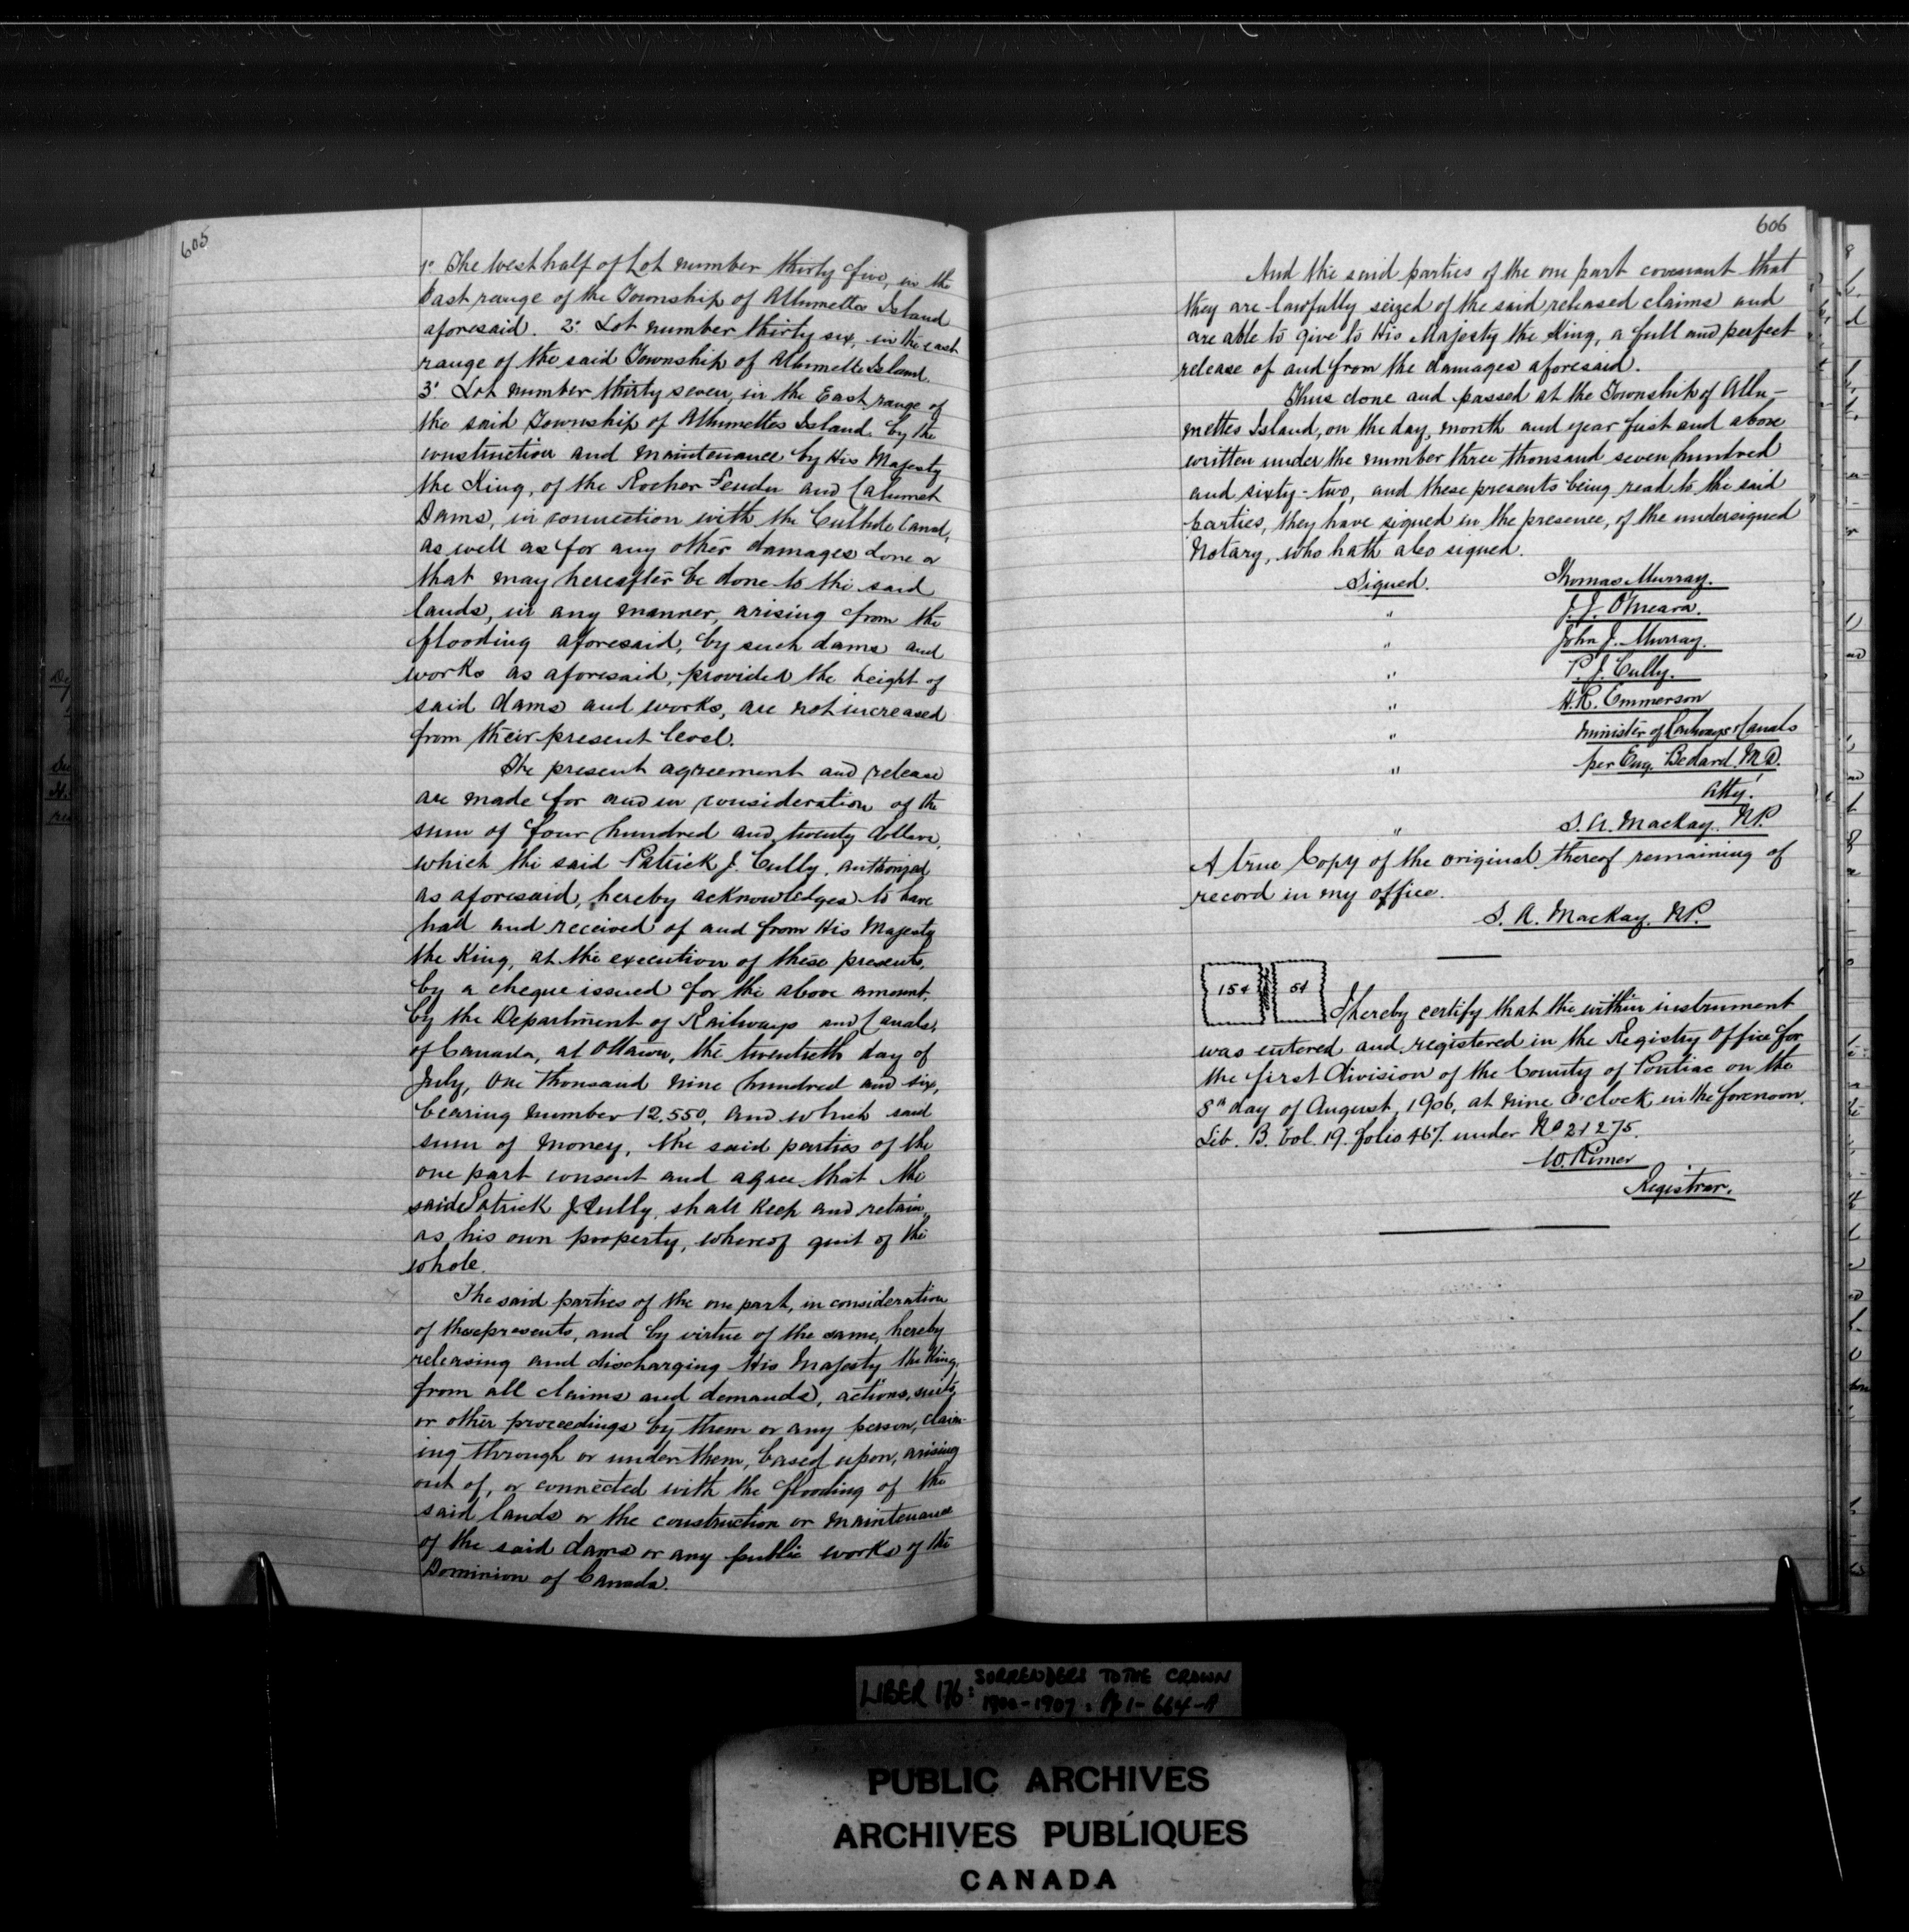 605
1º The West half of Lot number thirty five, in the
East range of the Township of Allumettes Island
aforesaid. 2º Lot number thirty six, in the east
range of the said Township of Allumette Island.
3º Lot number thirty seven, in the East range of
the said Township of Allumettes Island. by the
construction and maintenance by His Majesty
the King, of the Rocher Fendu and Calumet
Dams, in connection with the Culbute Canal,
as well as for any other damages done or
that may hereafter be done to the said
lands, in any manner, arising from the
flooding aforesaid, by such dams and
works as aforesaid, provided the height of
said dams and works, are not increased
from their present level.
The present agreement and release
are made for and in consideration of the
sum of four hundred and twenty dollars,
which the said Patrick J. Cully, authorized
as aforesaid, hereby acknowledges to have
had and received of and from His Majesty
the King, at the execution of these presents,
by a cheque issued for the above amount,
by the Department of Railways and Canals,
of Canada, at Ottawa, the twentieth day of
July, One thousand nine hundred and six,
bearing number 12,550, and which said
sum of money, the said parties of the
one part consent and agree that the
said Patrick J. Cully, shall keep and retain,
as his own property, whereof quit of the
whole.
The said parties of the one part, in consideration
of these presents, and by virtue of the same, hereby
releasing and discharging His Majesty the King,
from all claims and demands, actions, suits,
or other proceedings by them or any person, claim-
ing through or under them, based upon, arising
out of, or connected with the flooding of the
said lands or the construction or maintenance
of the said dams or any public works of the
Dominion of Canada.
606
And the said parties of the one part covenant that
they are lawfully seized of the said released claims and
are able to give to His Majesty the King, a full and perfect
release of and from the damages aforesaid.
Thus done and passed at the Township of Allu-
mettes Island, on the day, month and year first and above
written under the number three thousand seven hundred
and sixty-two, and these presents being read to the said
parties, they have signed in the presence, of the undersigned
Notary, who hath also signed.
Signed. Thomas Murray.
" J. J. O'Meara.
" John J. Murray.
" P. J. Cully.
" H. R. Emmerson
" Minister of Railways & Canals
" per Eug. Bedard. M.D.
Atty.
" S. A. Mackay. N.P.
A true Copy of the original thereof remaining of
record in my office.
S. A. Mackay. N.P.
15¢ 5¢
I hereby certify that the within instrument
was entered and registered in the Registry Office for
the first Division of the County of Pontiac on the
8th day of August, 1906, at nine O'clock in the forenoon.
Lib. B. Vol. 19. folio 467. under No 21275.
W. Rimer
Registrar.
LIBER 176: SURRENDERS TO THE CROWN
1900-1907: Pp 1-664-A
PUBLIC ARCHIVES
ARCHIVES PUBLIQUES
CANADA